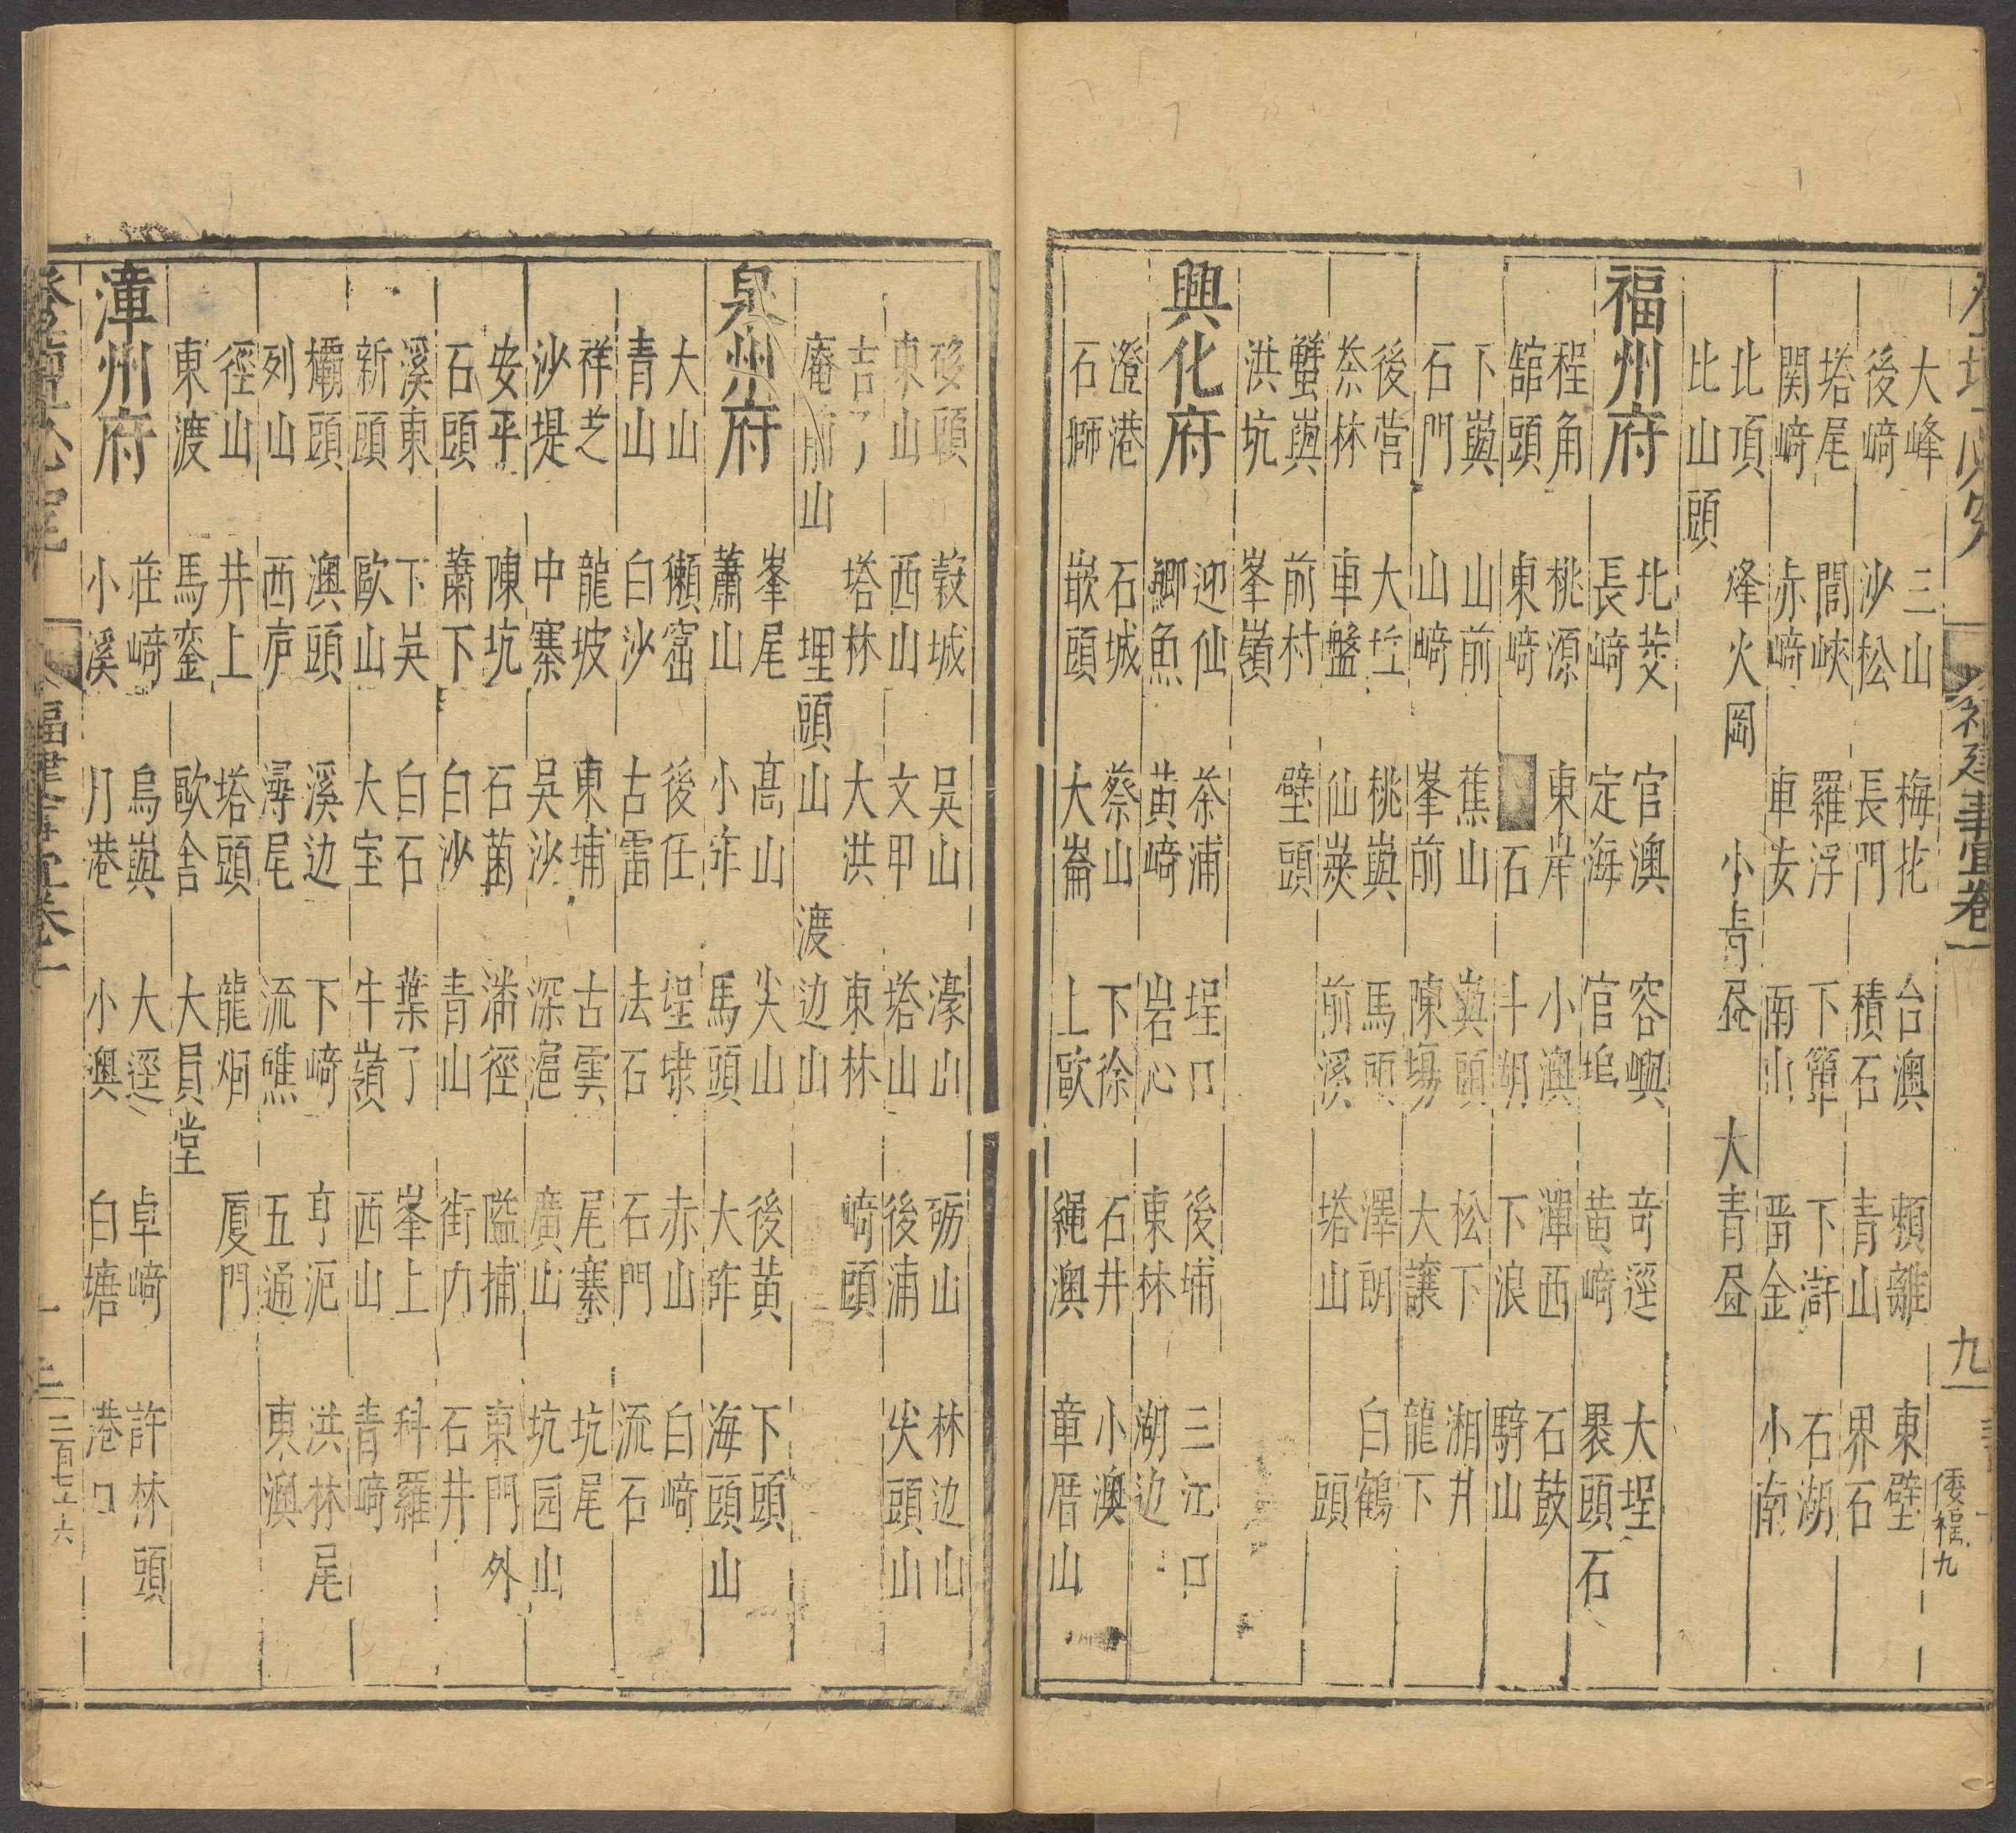 大峰　三山　梅花　台澳　頼離　東壁
後﨑　沙松　長門　積石　青山　界石
塔尾　閭峽　羅浮　下簞　下滸　石湖
関﨑　赤﨑　車安　南山　晋金　小南
北頂　烽火岡　小青㞐　大青㞐
比山頭
福州府
北茭　官澳　容嶼　奇逕　大埕
長﨑　定海　官塢　黄﨑　褁頭石
程角　桃源　東岸　小澳　潭西　石鼓
舘頭　東﨑　石　斗湖　下浪　騎山
下嶴　山前　蕉山　嶴頭　松下　湘井
石門　山﨑　峯前　陳塲　大讓　龍下
後营　大坵　桃嶴　馬頭　澤朗　白鶴
奈林　車盤　仙莢　前溪　塔山　頭
蠏嶴　前村　壁頭
洪坑　峯嶺
興化府
迎仙　茶浦　埕口　後埔　三江口
鄉魚　黄﨑　岩心　東林　湖边
澄港　石城　蔡山　下徐　石井　小澳
石獅　嵌頭　大崙　上歐　繩澳　章厝山
福建事宜卷一
九
倭福九
䂾頭　穀城　吴山　濠山　蛎山　林边山
東山　西山　文甲　塔山　後浦　尖頭山
吉了　塔林　大洪　東林　﨑頭
庵前山　埋頭山　渡边山
泉州府
峯尾　高山　尖山　後黄　下頭
蕭山　小岞　馬頭　大岞　海頭山
大山　獺窟　後任　埕埭　赤山　白﨑
青山　白沙　古雷　法石　石門　流石
祥芝　龍坡　東埔　古雲　尾寨　坑尾
沙堤　中寨　吴沙　深滬　廣山　坑园山
安平　陳坑　石菌　潘徑　隘捕　東門外
石頭　蕭下　白沙　青山　街内　石井
溪東　下吴　白石　葉了　峯上　科羅
新頭　歐山　大宝　牛嶺　西山　青﨑
壩頭　澳頭　溪边　下﨑　亨泥　洪林尾
列山　西庐　潯尾　流礁　五通　東澳
徑山　井上　塔頭　龍烔　厦門
東渡　馬鑾　歐舍　大員堂
漳州府
莊﨑　烏嶴　大逕　卓﨑　許林頭
小溪　月港　小澳　白塘　港口
福建事宜卷一
三百七十六